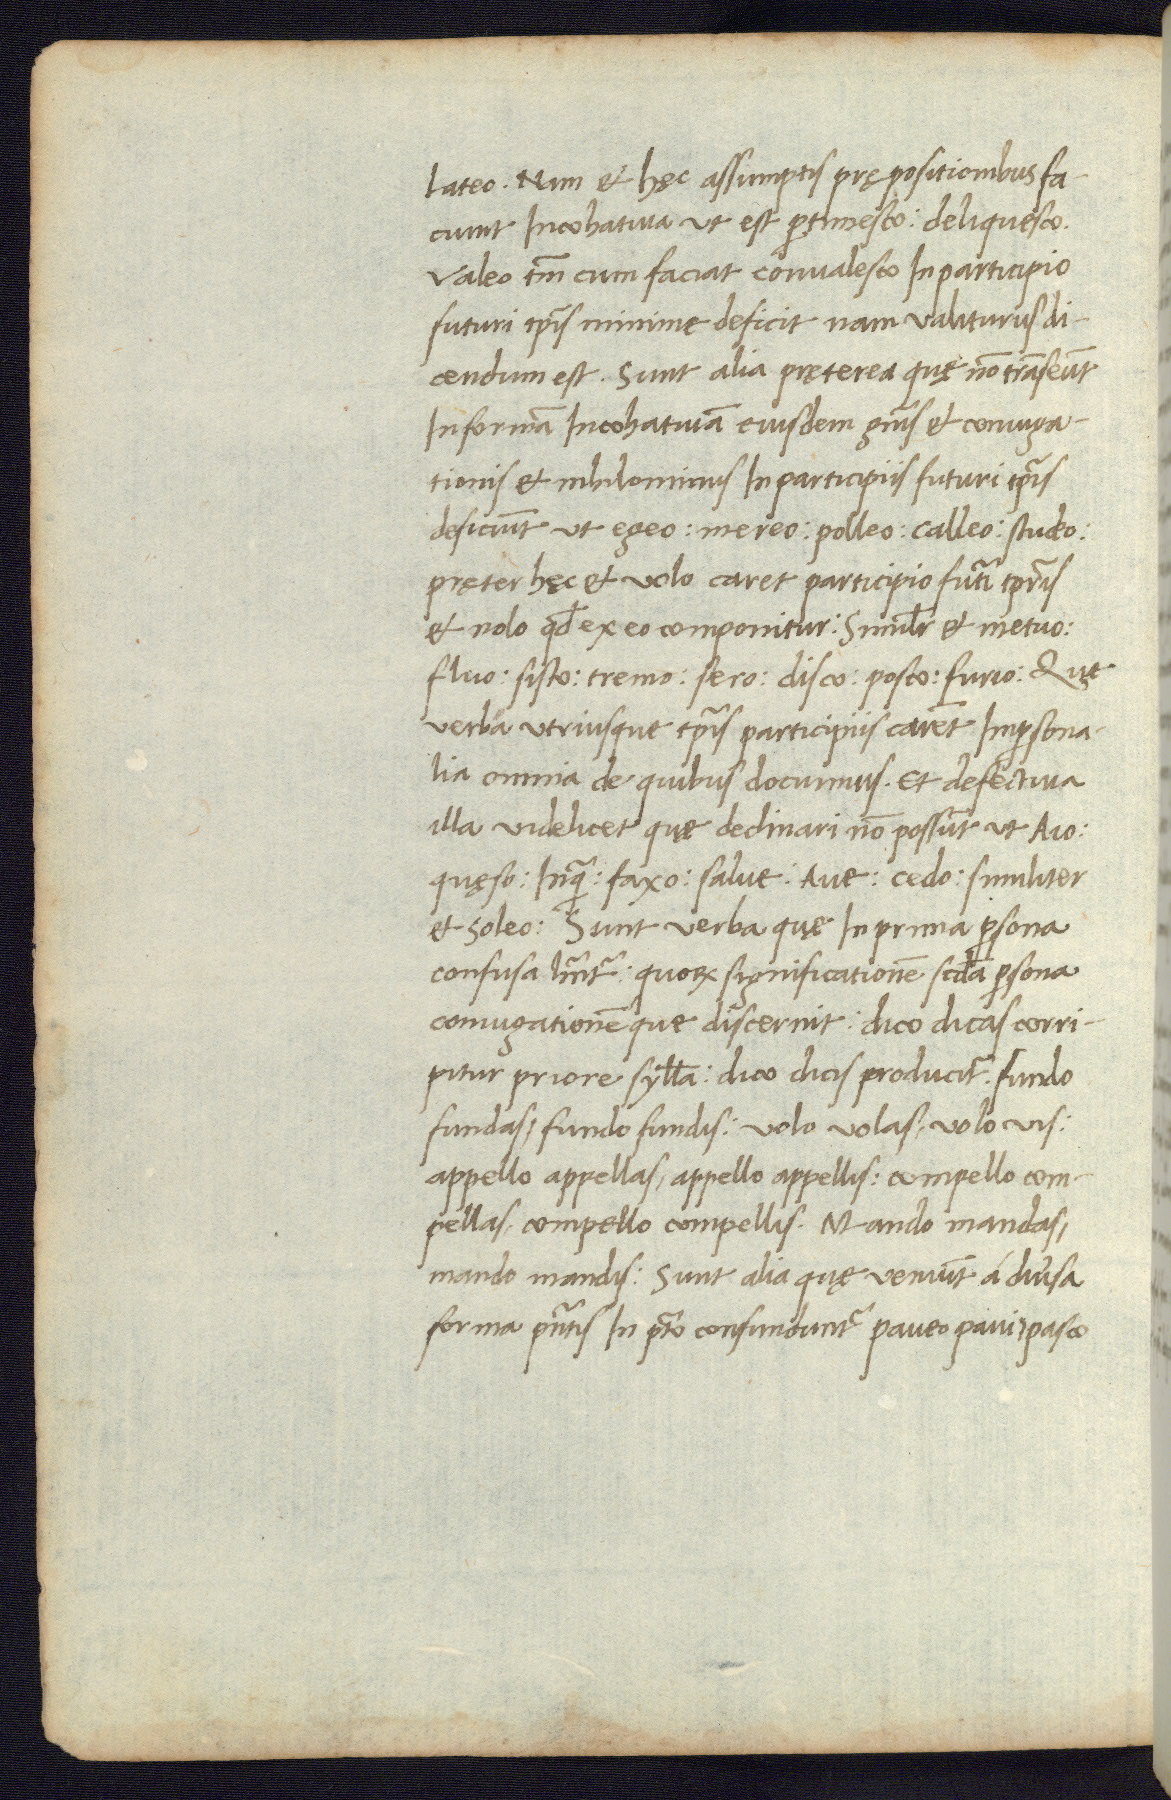 lateo. Nam et hęc assumptis prępositionibus fa-
ciunt Incohatiua ut est ꝑtimesco: deliquesco.
Valeo tm̄ cum faciat conualesco In participio
futuri tp̄is minime deficit nam valiturus di-
cendum est. Sunt alia pręterea quę nō trāseūt
In formā Incohatiuā eiusdem gn̄is et coniuga-
tionis et nihilominus In participiis futuri tp̄is
deficiūt ut egeo: mereo: polleo: calleo: studeo:
pręter hęc et volo caret participio futī tp̄ris
et nolo qd̄ ex eo componitur: Similr̄ et metuo:
fluo: sisto: tremo: fero: disco: posco: furio: Quę
verba utriusque tp̄is participiis carēt Imꝑsona-
lia omnia de quibus docuimus. Et defectiua
illa videlicet quę declinari nō possūt ut Aio:
quęso: Inq̄: faxo: salue: Aue: cedo: similiter
et soleo: Sunt verba quę In prima ꝑsona
confusa hn̄tr̄: quoꝝ significationē scd̄a ꝑsona
coniugationē que discernit: dico dicas corri-
pitur priore syll̄a: dico dicis producit᷑. fundo
fundas, fundo fundis: volo volas, volo vis:
appello appellas, appello appellis: compello com-
pellas, compello compellis. Mando mandas,
mando mandis: Sunt alia quę veniūt á diūsa
forma p̄ntis In p̄to confundunt᷑ paueo paui, pasco